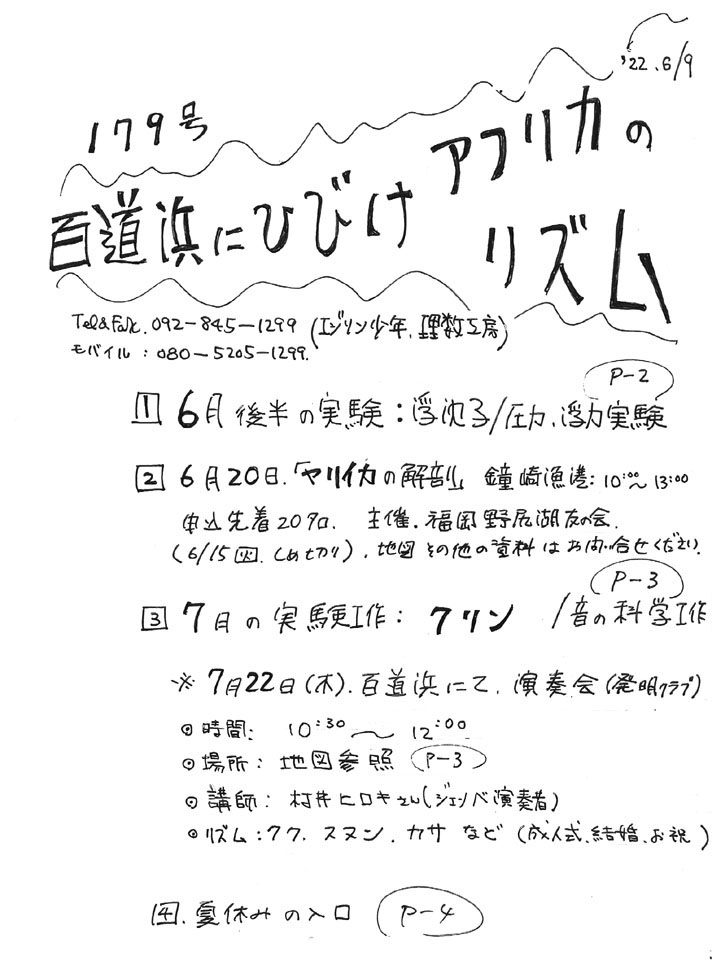 '22.6/9
179号
百道浜にひびけ アフリカの
リズム
Tel&Fax. 092-845-1299 (エジソン少年、理数工房)
モバイル : 080-5205-1299.
P-2
1 6月後半の実験:浮沈子/圧力、浮力実験
2 6月20日.「ヤリイカの解剖」 鐘崎漁港:10:00~13:00
申込先着20名. 主催.福岡野尻湖友の会.
(6/15火.しめ切り).地図その他の資料はお問い合せください.
P-3
3 7月の実験工作: クリン /音の科学工作
※ 7月22日(木).百道浜にて.演奏会(発明クラブ)
◎時間: 10:30~12:00
◎場所:地図参照 P-3
◎講師:村井ヒロキさん(ジェンベ演奏者)
◎リズム:クク.スヌン.カサ など (成人式.結婚.お祝)
4.夏休みの入口 P-4